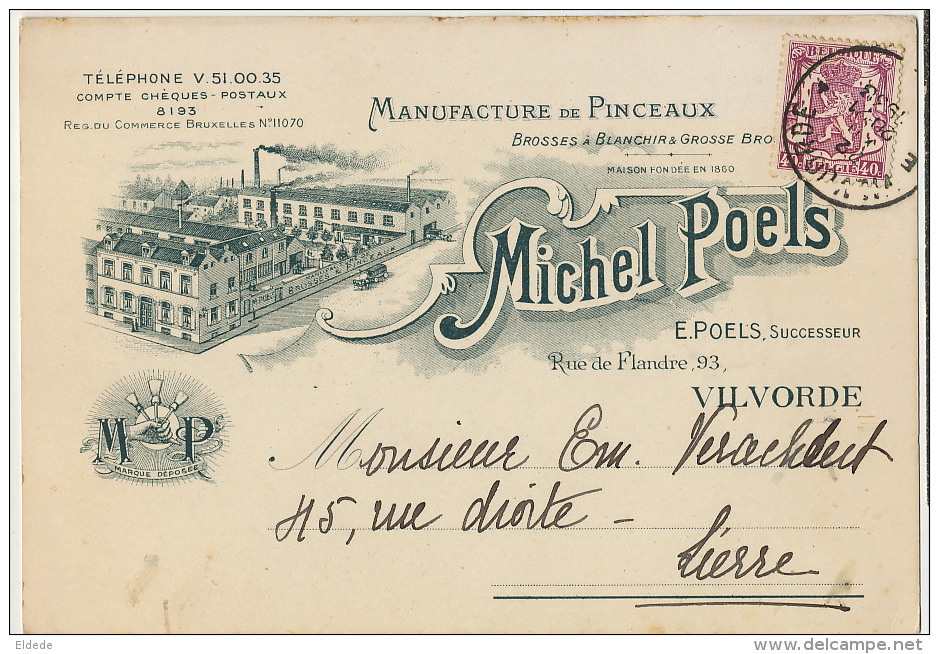 TÉLÉPHONE V. 51.00.35
COMPTE CHÈQUES-POSTAUX
8193
REG. DU COMMERCE BRUXELLES Nº 11070
MANUFACTURE DE PINCEAUX
BROSSES À BLANCHIR & GROSSE
MAISON FONDÉE EN 1860
BELGIQUE
BELGIË 40c
Michel Poels
E. POELS, SUCCESSEUR
Rue de Flandre, 93,
VILVORDE
M P
MARQUE DÉPOSÉE
Monsieur Em. Verachtert
45, rue droite -
Lierre
Eldede
www.delcampe.net